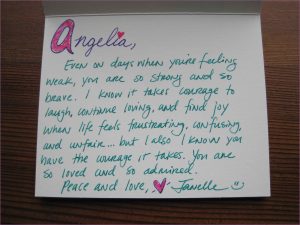 Angelia,
Even on days when you're feeling
weak, you are so strong and so
brave. I know it takes courage to
laugh, continue loving, and find joy
when life feels frustrating, confusing,
and unfair... but I also I know you
have the courage it takes. You are
so loved and so admired.
Peace and love, Janelle